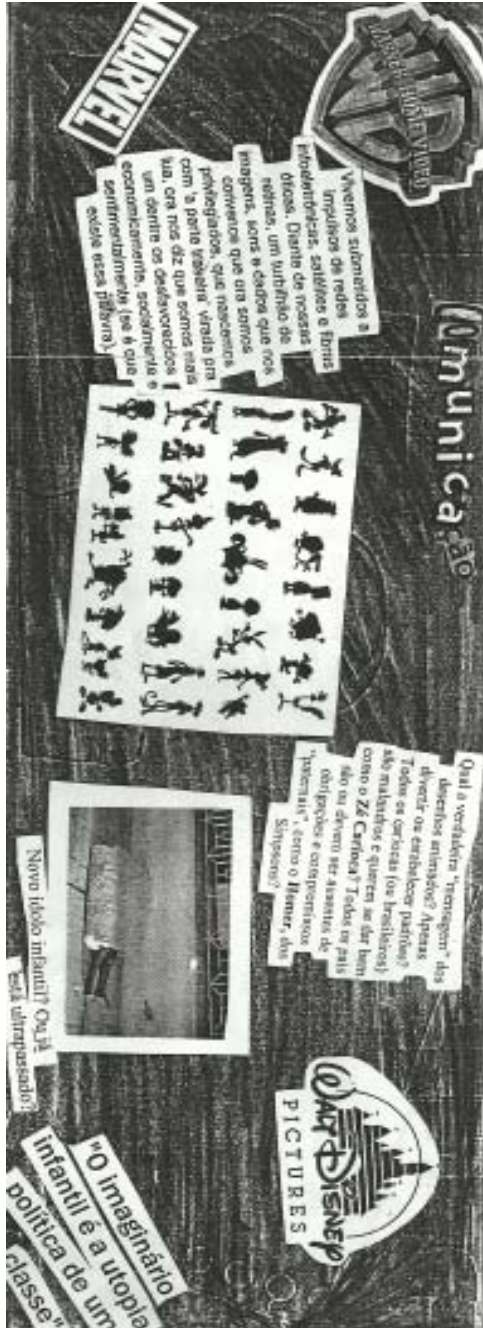 WB
WARNER HOME VIDEO
MARVEL
Comunicação
Vivemos submetidos a
impulsos de redes
infoeletrônicas, satélites e fibras
óticas. Diante de nossas
retinas, um turbilhão de
imagens, sons e dados que nos
convence que ora somos
privilegiados, que nascemos
com 'a parte traseira' virada pra
lua, ora nos diz que somos mais
um dentre os desfavorecidos
economicamente, socialmente e
sentimentalmente (se é que
existe essa palavra).
Qual a verdadeira "mensagem" dos
desenhos animados? Apenas
divertir ou estabelecer padrões?
Todos os cariocas (ou brasileiros)
são malandros e querem se dar bem
como o Zé Carioca? Todos os pais
são ou devem ser ausentes de
obrigações e compromissos
"paternais", como o Homer, dos
Simpsons?
Novo ídolo infantil? Ou já
está ultrapassado?
WALT DISNEY
PICTURES
"O imaginário
infantil é a utopia
política de um
classe"